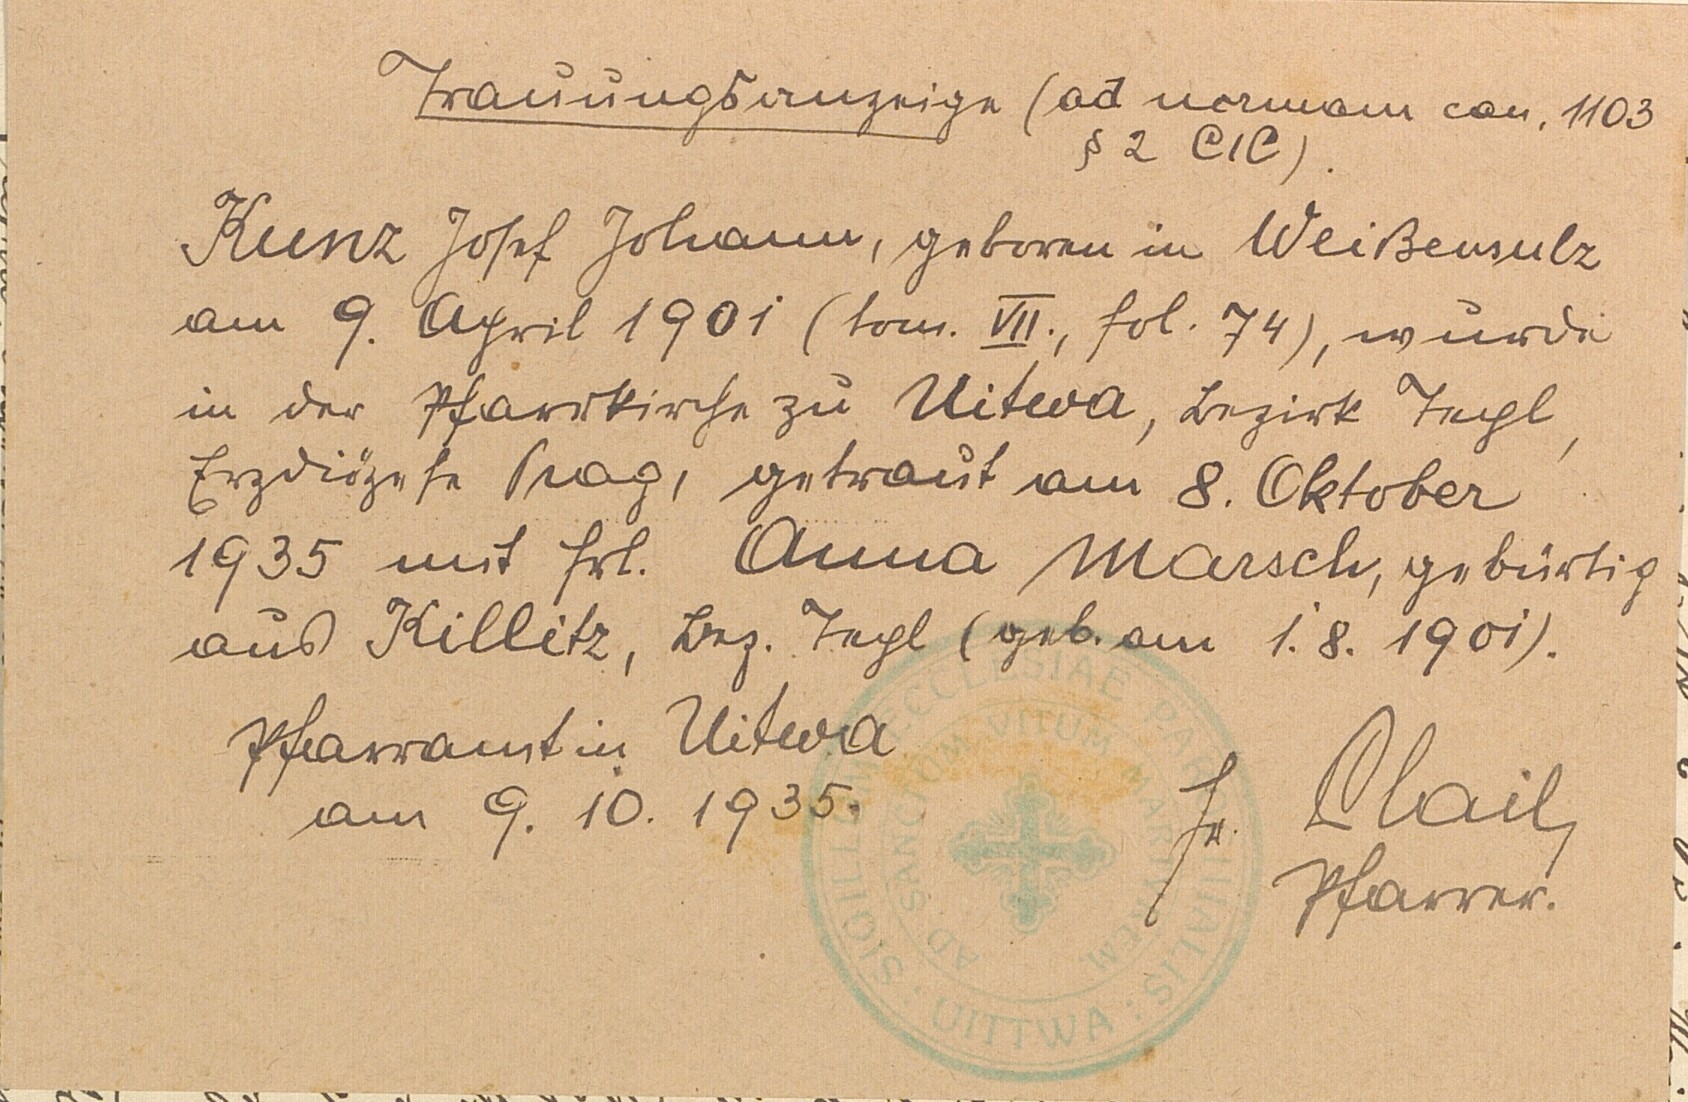 Trauungsanzeige (ad normam can. 1103
§ 2 CIC).
Kunz Josef Johann, geboren in Weißensulz
am 9. April 1901 (tom. VII., fol. 74), wurde
in der Pfarrkirche zu Uitwa, Bezirk Tepl,
Erzdiözese Prag, getraut am 8. Oktober
1935 mit Frl. Anna Marsch, gebürtig
aus Killitz, Bez. Tepl (geb. am 1.8. 1901).
Pfarramt in Uitwa
am 9. 10. 1935.
Fr.
Pfarrer.
SIGILLUM ECCLESIAE PAROCHIALIS · UITTWA :
AD SANCTUM VITUM MARTYREM